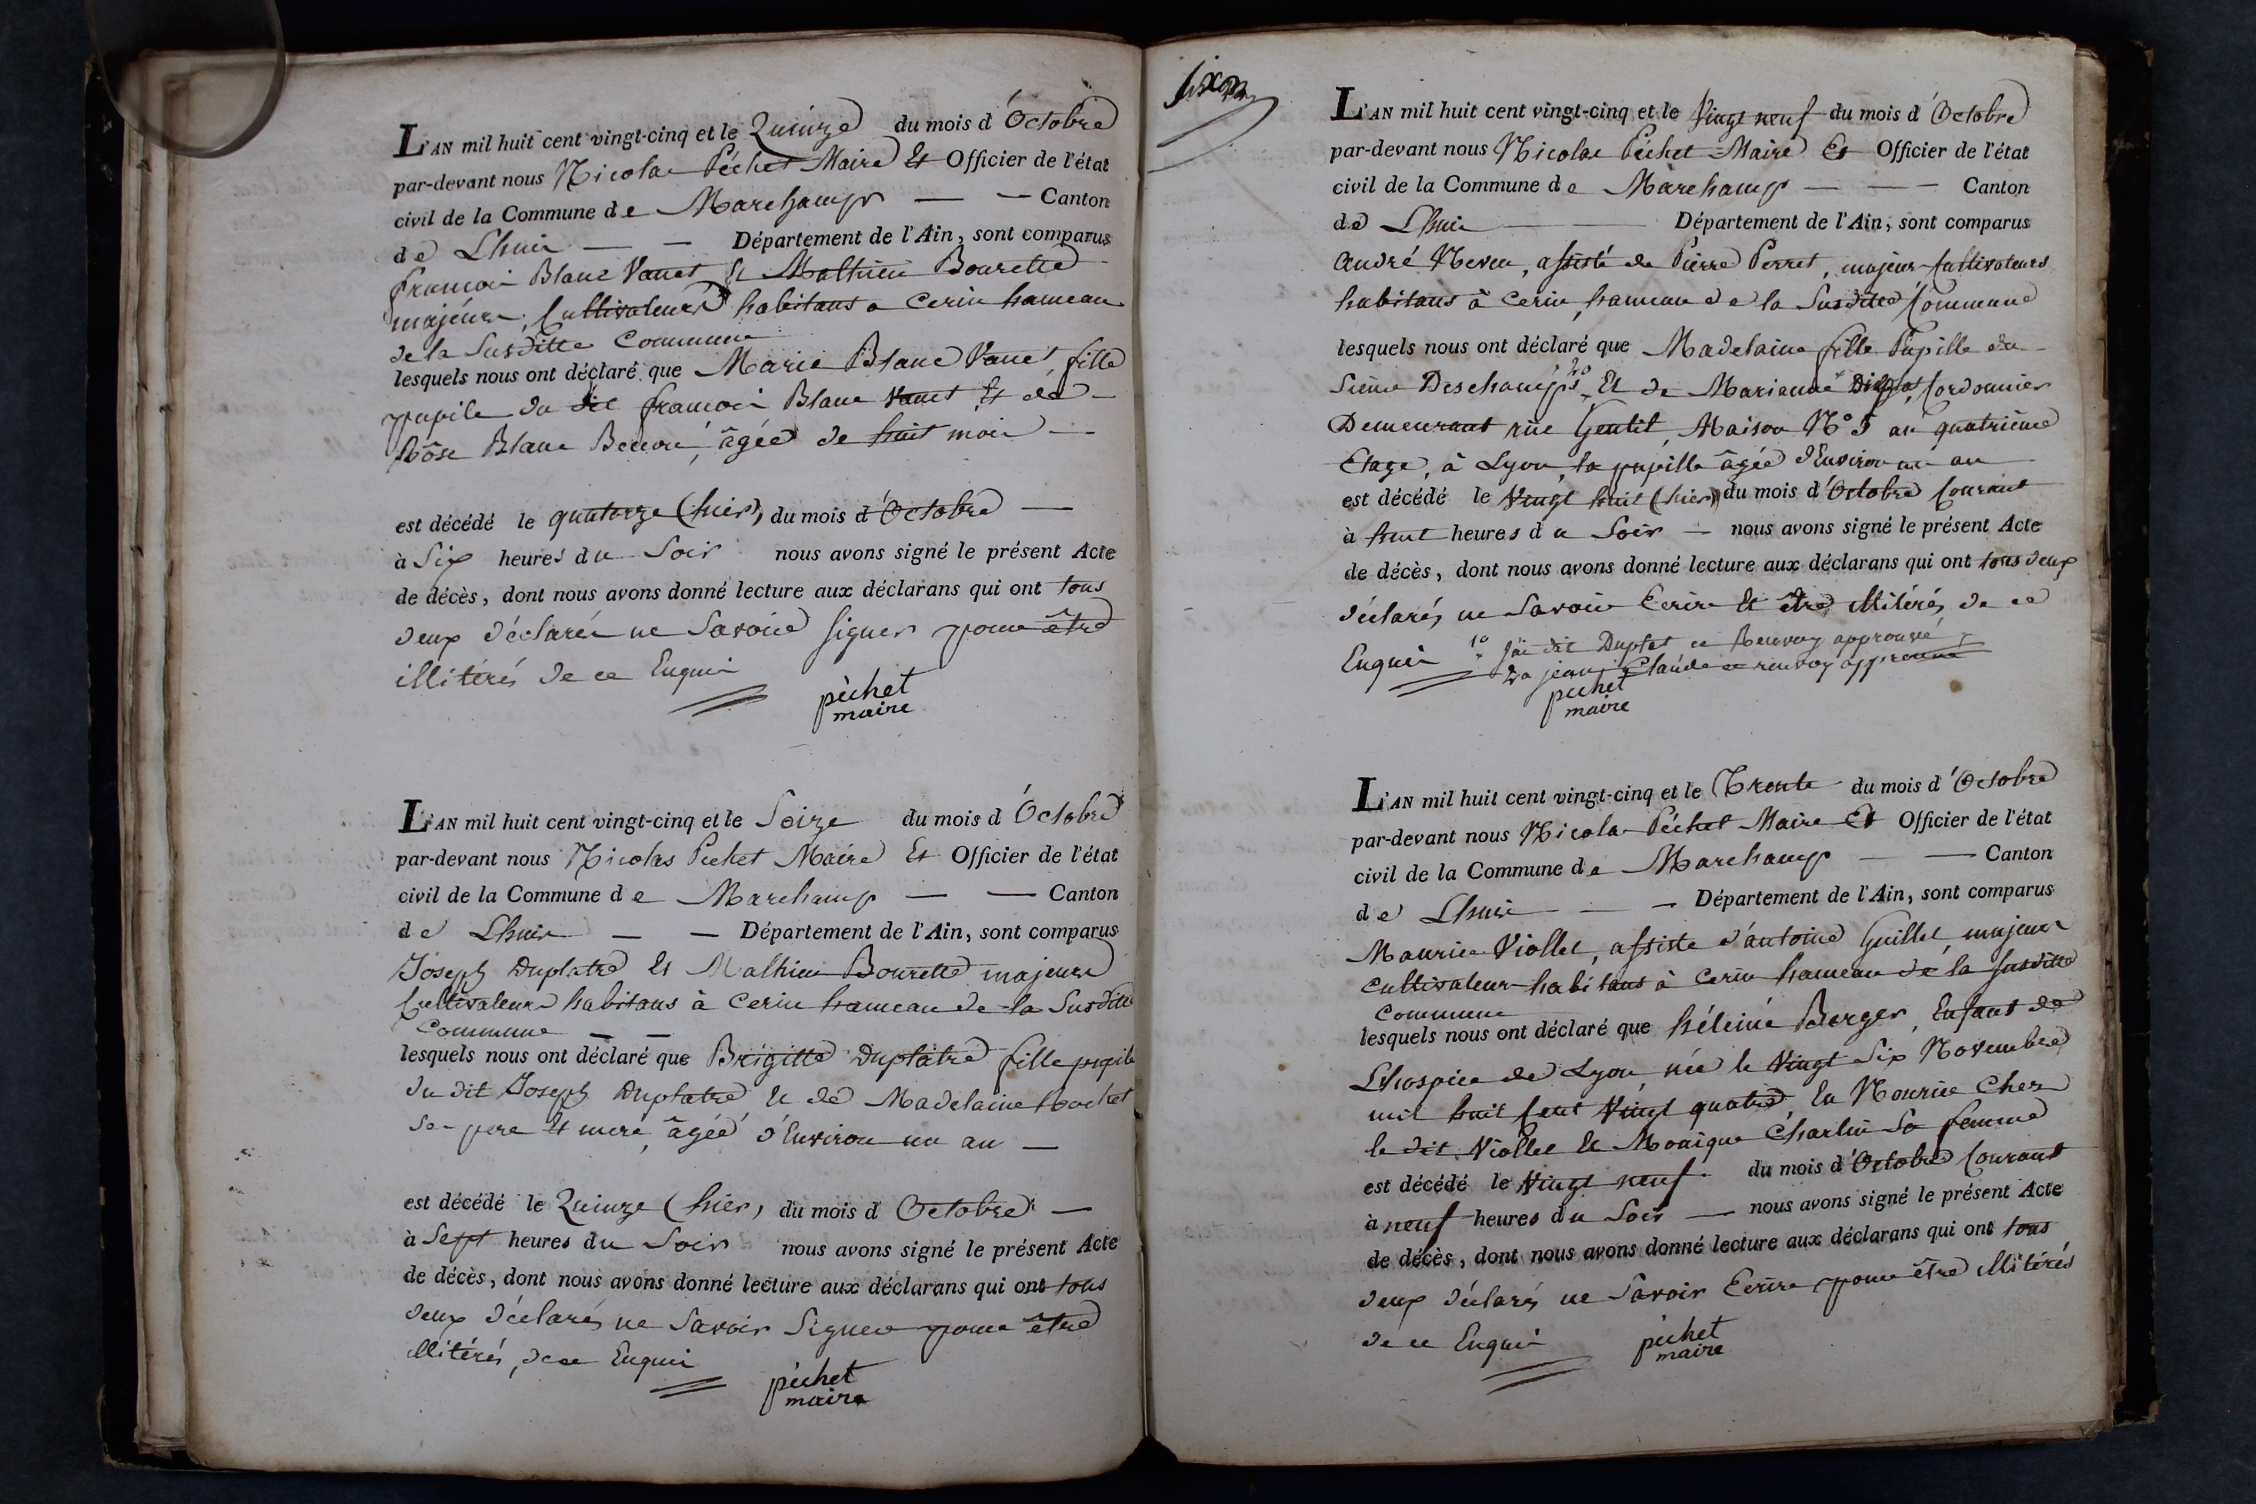 L'AN mil huit cent vingt-cinq et le Quinze du mois d'Octobre
par-devant nous Nicolas Péchet Maire Et Officier de l'état
civil de la Commune de Marchamp — — Canton
de Lhuis — — Département de l'Ain, sont comparus
françois Blanc Vanet Et Mathieu Bourette
majeurs, Cultivateurs habitans a Cerin hameau
de la Susditte Commune
lesquels nous ont déclaré que Marie Blanc Vanet, fille
pupile du dit françois Blanc Vanet Et de
Rôse Blanc, âgée de huit mois —
est décédé le quatorze (hier) du mois d'Octobre —
à Six heures du Soir nous avons signé le présent Acte
de décès, dont nous avons donné lecture aux déclarans qui ont tous
deux déclarés ne Savoir Signer pour être
illitérés de ce Enquis
péchet
maire
L'AN mil huit cent vingt-cinq et le Seize du mois d'Octobre
par-devant nous Nicolas Péchet Maire Et Officier de l'état
civil de la Commune de Marchamp — — Canton
de Lhuis — — Département de l'Ain, sont comparus
Joseph Duplatre Et Mathieu Bourette majeurs
Cultivateurs habitans à Cerin hameau de la Susditte
Commune — —
lesquels nous ont déclaré que Brigitte Duplâtre fille pupile
du dit Joseph Duplatre Et de Madelaine Rochet
Se- pere Et mere, âgée d'Environ un an —
est décédé le Quinze (hier) du mois d'Octobre —
à Sept heures du Soir nous avons signé le présent Acte
de décès, dont nous avons donné lecture aux déclarans qui ont tous
deux déclarés ne Savoir Signer pour être
illitérés, de ce Enquis
péchet
maire
sixen
L'AN mil huit cent vingt-cinq et le Vingt neuf du mois d'Octobre
par-devant nous Nicolas Péchet Maire Et Officier de l'état
civil de la Commune de Marchamp — — Canton
de Lhuis — Département de l'Ain, sont comparus
André Neveu, assisté de Pierre Perret, majeur Cultivateurs
habitans à Cerin, hameau de la Susditte Commune
lesquels nous ont déclaré que Madelaine fille Pupille du
Sieur Deschamps 2o Et de Marianne, Cordonnier
Demeurant rüe Gentil, Maison No 5 au quatrième
Etage, à Lyon la pupille âgée d'Environ un an
est décédé le Vingt huit (hier) du mois d'Octobre Courant
à huit heures du Soir — nous avons signé le présent Acte
de décès, dont nous avons donné lecture aux déclarans qui ont tous deux
déclarés ne Savoir Ecrire Et être illitérés de ce
Enquis 1o J'ai dit ce Renvoy approuvé
2o jean Claude ce renvoy approuvé
péchet
maire
L'AN mil huit cent vingt-cinq et le Trente du mois d'Octobre
par-devant nous Nicolas Péchet Maire Et Officier de l'état
civil de la Commune de Marchamp — — Canton
de Lhuis — — Département de l'Ain, sont comparus
Maurice Viollet, assisté d'antoine Guillet, majeur
cultivateur habitans à Cerin hameau de la Susditte
Commune
lesquels nous ont déclaré que héleine Berger, Enfant de
Lhospice de Lyon née le Vingt Six Novembre
mil huit Cent Vingt quatre, En Nourice Chez
le dit Viollet Et Monique Charlin Sa femme
est décédé le Vingt neuf du mois d'Octobre Courant
à neuf heures du Soir — nous avons signé le présent Acte
de décès, dont nous avons donné lecture aux déclarans qui ont tous
deux déclarés ne Savoir Ecrire pour être illitérés
de ce Enquis
péchet
maire